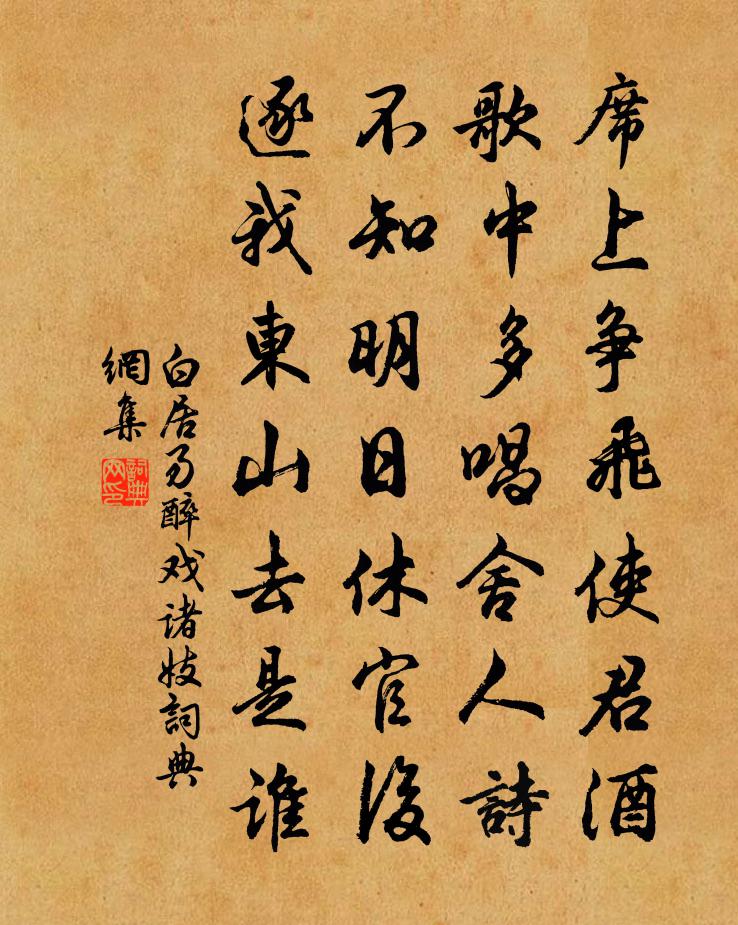 席上争飛使君酒
歌中多唱舍人詩
不知明日休官後
逐我東山去是誰
白居易醉戏诸妓詞典
網集
詞典
网印